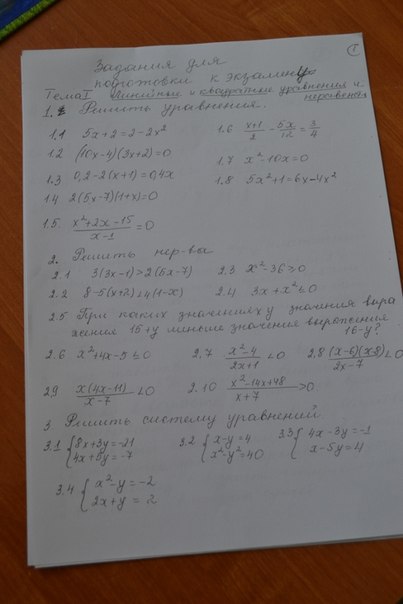 1
Задания для
подготовки к экзамену
Тема I Линейные и квадратные уравнения и
неравенст
1. Решить уравнения.
1.1 5x+2=2-2x²
1.6 (x+1)/2 - 5x/12 = 3/4
1.2 (10x-4)(3x+2)=0
1.7 x²-10x=0
1.3 0,2-2(x+1)=0,4x
1.8 5x²+1=6x-4x²
1.4 2(5x-7)(1+x)=0
1.5. (x²+2x-15)/(x-1) =0
2. Решить нер-вы
2.1 3(3x-1)>2(5x-7)
2.3 x²-36≥0
2.2 8-5(x+2)<4(1-x)
2.4 3x+x²≤0
2.5 При каких значениях y значения выра
жения 15+y меньше значение выражения
16-y?
2.6 x²+4x-5≤0
2.7 (x²-4)/(2x+1) <0
2.8 (x-6)(x-8)/(2x-7) <0
2.9 x(4x-11)/(x-7) <0
2.10 (x²-14x+48)/(x+7) >0.
3. Решить систему уравнений.
3.1 {8x+3y=-21
4x+5y=-7
3.2 {x-y=4
x²-y²=40
3.3 {4x-3y=-1
x-5y=4
3.4 {x²-y=-2
2x+y=2